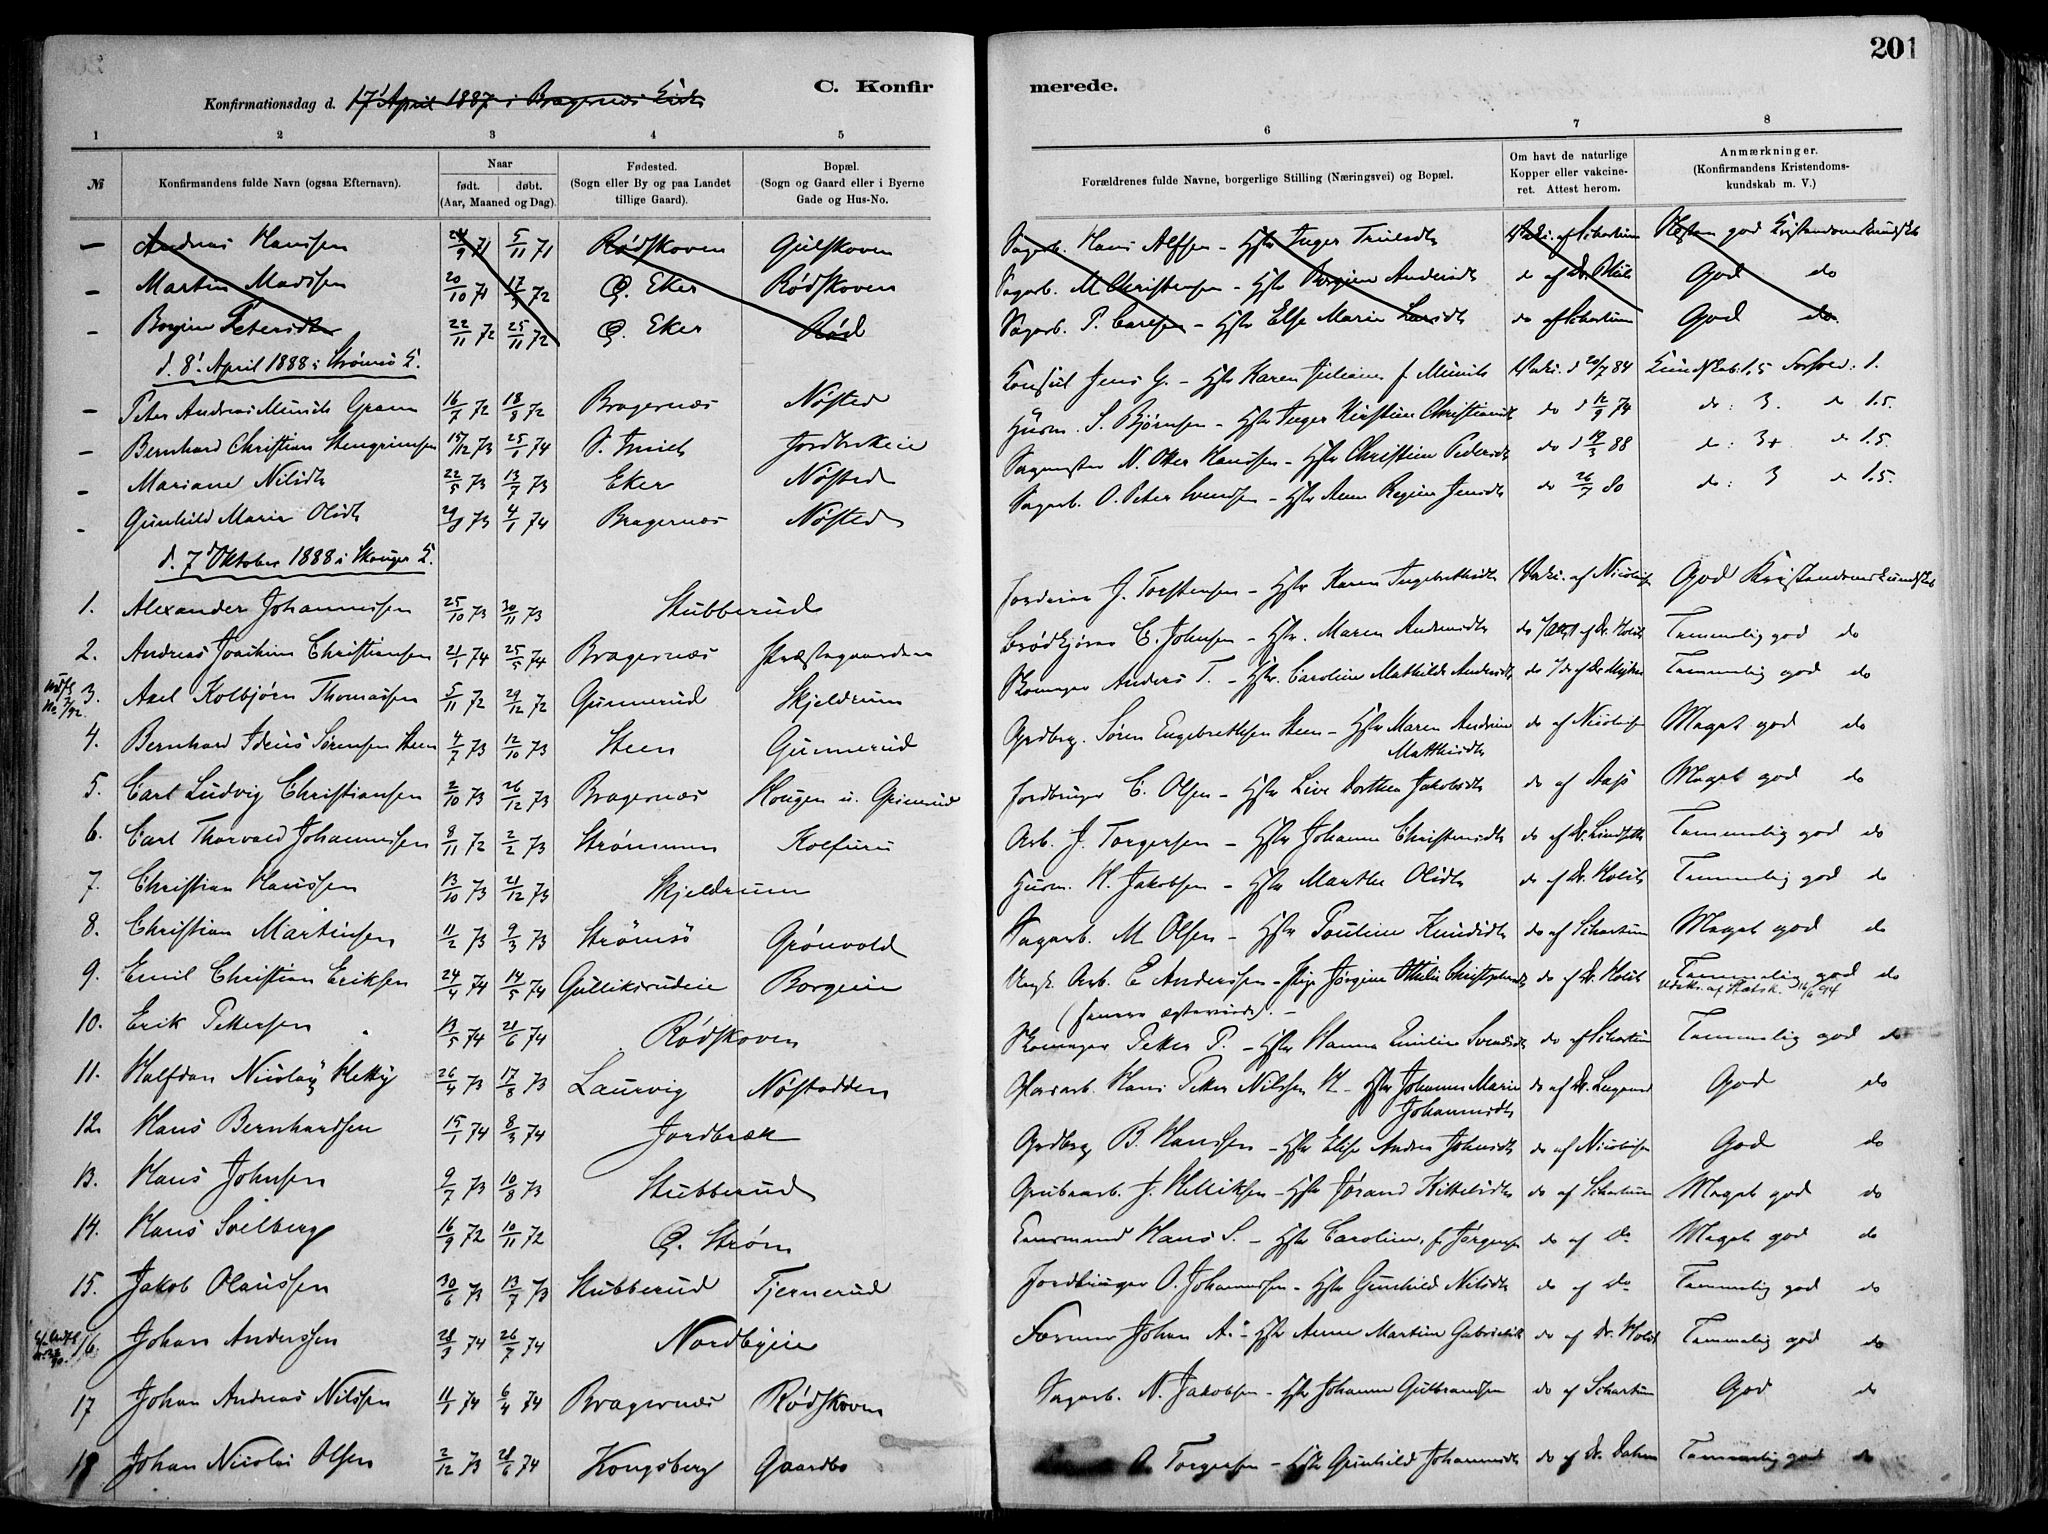 201
C. Konfir merede.
Konfirmationsdag d. 17' April 1887 i Bragernæs Kirke
1 2 3 4 5 6 7 8
№ Konfirmandens fulde Navn (ogsaa Efternavn). Naar født. døbt. (Aar, Maaned og Dag). Fødested. (Sogn eller By og paa Landet tillige Gaard). Bopæl. (Sogn og Gaard eller i Byerne Gade og Hus-No. Forældrenes fulde Navne, borgerlige Stilling (Næringsvei) og Bopæl. Om havt de naturlige Kopper eller vakcineret. Attest herom. Anmærkninger. (Konfirmandens Kristendomskundskab m. V.)
— Andreas Hanssen 24/9 71 5/11 71 Rødskoven Gulskoven Sagarb. Hans Alfsen – Hstr Inger Trulsdtr Vaks. af Schartum Næsten god Kristendomskundskab
— Martin Madssen 20/10 71 17/3 72 Ø. Eker Rødskoven Sagarb. M Christensen – Hstr Borgine Andersdtr do af Dr. God do
— Borgine Petersdtr 22/11 72 25/11 72 Ø. Eker Rød Sagarb. P. Carlsen – Hstr Else Marie Larsdtr do af Schartum God do
d. 8' April 1888 i Strømsø K.
— Peter Andreas Münch Gram 16/7 72 18/8 72 Bragernæs Nøsted Konsul Jens G. – Hstr Karen Juliane f. Münch Vaks. d 20/7 84 Kundskab: 1,5 Forhold: 1.
— Bernhard Christian Stengrimsen 15/12 73 25/1 74 S. Jordbrækeie Husm. S. Bjørnsen – Hstr Inger Kirstine Christiansdtr do d 12/9 74 do: 3. do 1.5.
— Mariane Nilsdtr 22/5 73 13/7 73 Eker Nøsted Sagmester N. Otter Hanssen – Hstr Christine Pedersdtr do d 19/3 88 do: 3+ do 1.5.
— Gunhild Marie Olsdtr 29/8 73 4/1 74 Bragernæs Nøsted Sagarb. O. Peter Svendsen – Hstr Anne Regine Jensdtr do 26/7 80 do: 3 do 1.5.
d. 7d Oktober 1888 i Skouger K.
1. Alexander Johannessen 25/10 73 30/11 73 Stubberud J. Torstensen – Hstr Karen Ingebrethsdtr Vaks. af Nicolaisen God Kristendomskundskab
2. Andreas Joachim Christiansen 21/1 74 25/5 74 Bragernæs Præstegaarden Brødkjører C. Johnsen – Hstr. Maren Andersdtr do af Dr. Holst Temmelig god do
3. Axel Kolbjørn Thomassen 5/11 72 29/12 72 Gunnerud Skjeldrum Skomager Anders T. – Hstr. Caroline Mathilde Andersdtr do Temmelig god do
4. Bernhard Sørensen Steen 4/7 73 12/10 73 Steen Gunnerud Grdbrg. Søren Engebrethsen Steen – Hstr Maren Andrine Matthisdtr do af Nicolaisen Meget god do
5. Carl Ludvig Christiansen 2/10 73 26/12 73 Bragernæs Hougen u. Grimsrud Jordbruger C. Olsen – Hstr Live Dorthea Jakobsdtr do af Aas Meget god do
6. Carl Thorvald Johannessen 8/11 72 2/2 73 Strømmen Kolfuru Arb. J. Torgersen – Hstr Johanne Christensdtr do af Dr. Lindseth Temmelig god do
7. Christian Hanssen 13/10 73 21/12 73 Skjeldrum Husm. H. Jakobsen – Hstr Marthe Olsdtr do af Dr. Holst Temmelig god do
8. Christian Martinsen 11/2 73 9/3 73 Strömsö Grönvold Sagarb. M Olsen – Hstr Pouline Knudsdtr do af Schartum Meget god do
9. Emil Christian Eriksen 24/4 74 14/5 74 Gulliksrudeie Borgeeie Ungk. Arb. E Anderssen – Pige Jørgine Othilie Christophersdtr do af Dr. Holst Temmelig god do
(senere ægteviede). –
10. Erik Pettersen 13/5 74 21/6 74 Rødskoven Skomager Petter P. – Hstr Hanna Emilie Svendsdtr do af Schartum Temmelig god do
11. Halfdan Nicolay Hetty 26/4 73 17/8 73 Laurvig Nøstodden Glasarb. Hans Petter Nilssen H – Hstr Johanne Marie Johannesdtr do af Dr. God do
12. Hans Bernhardsen 15/1 74 8/3 74 Jordbræk Grdbrg B. Hanssen – Hstr Elise Andrea Johnsdtr do af Nicolaisen God do
13. Hans Johnsen 9/7 73 10/8 73 Stubberud Grubearb. J. Helliksen – Hstr Jørand Kittelsdtr do af Schartum Meget god do
14. Hans Svelberg 16/9 72 10/11 72 Ø. Strøm Hans S. – Hstr Caroline, f. Jørgensen do af Do Meget god do
15. Jakob Olaussen 30/6 73 13/7 73 Stubberud Tjernerud Jordbruger O. Johannessen – Hstr Gunhild Nilsdtr do af Do Temmelig god do
16. Johan Anderssen 28/3 74 26/7 74 Nordbyeie Former Johan A. – Hstr Anne Martine Gabrielsdtr do af Dr. Holst Temmelig god do
17 Johan Andreas Nilssen 11/1 74 6/4 74 Bragernæs Rødskoven Sagarb. N. Jakobsen – Hstr Johanne Gulbrandsen do af Schartum God do
18 Johan Nicolai Olsen 2/12 73 28/6 74 Kongsberg Gaardbo O Torgersen – Hstr Gunhild Johannesdtr do af Dr. Dahm Temmelig god do